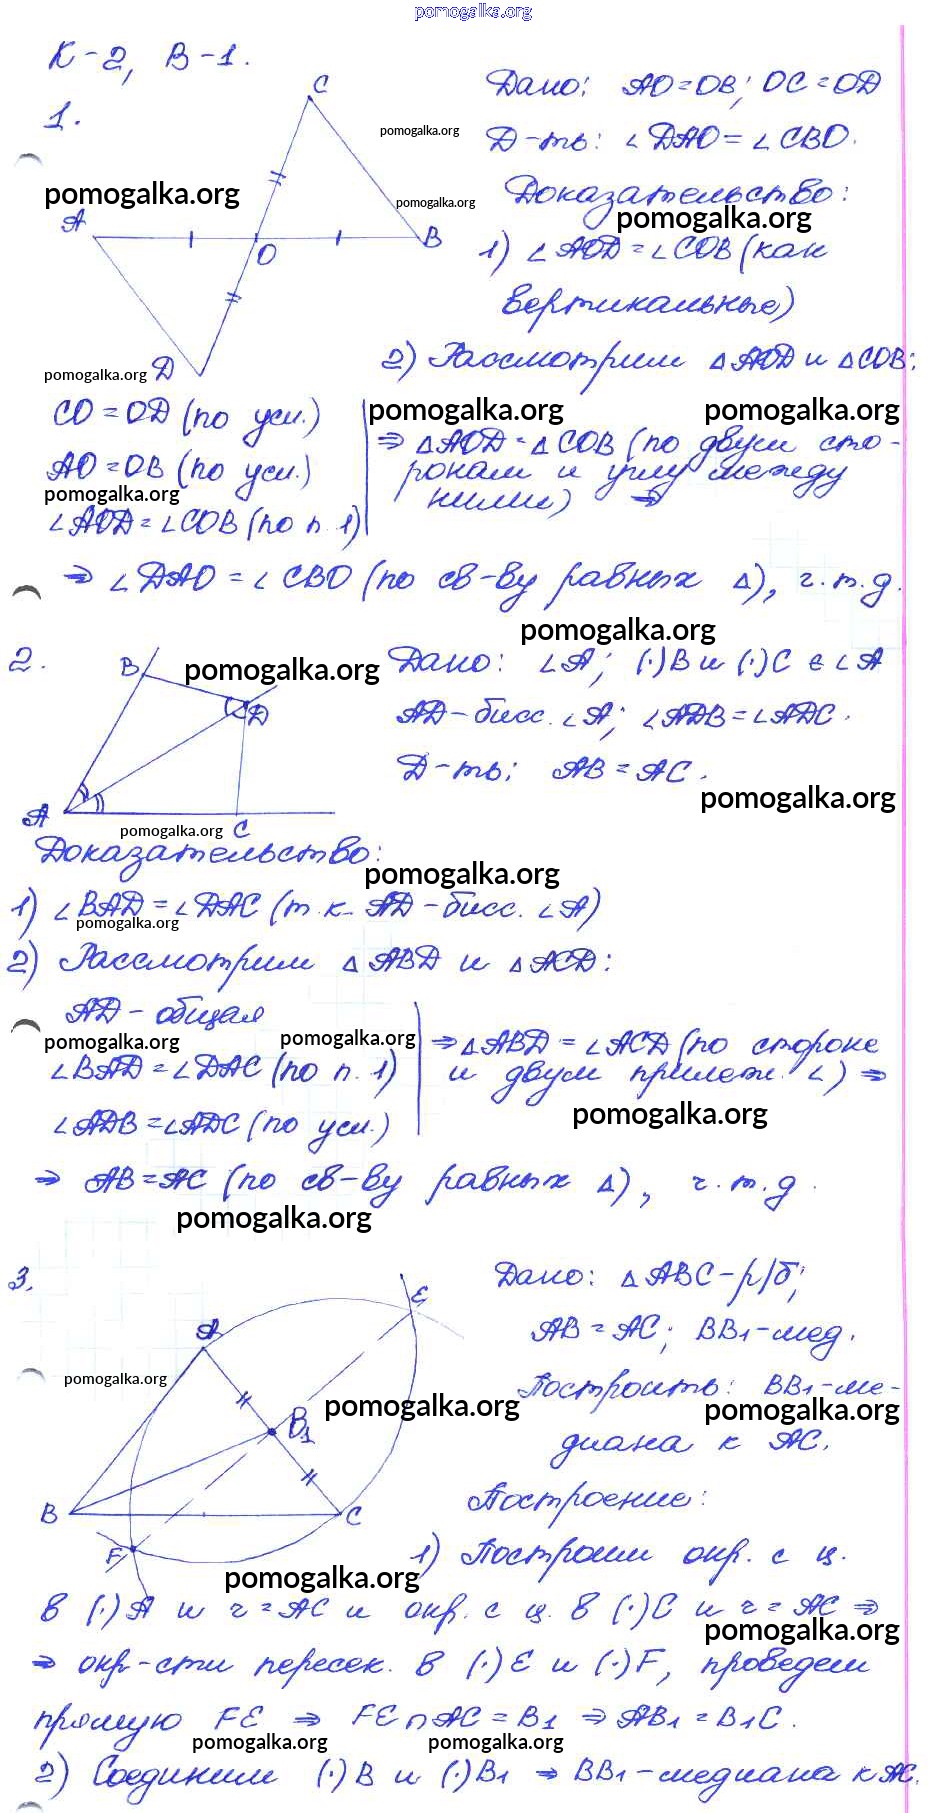 pomogalka.org
К-2, В-1.
1.
C
A
B
O
D
Дано: AO=OB; OC=OD
Д-ть: ∠DAO=∠CBO.
Доказательство:
1) ∠AOD=∠COB (как
вертикальные)
2) Рассмотрим △AOD и △COB:
CO=OD (по усл.)
AO=OB (по усл.)
∠AOD=∠COB (по п. 1)
⇒ △AOD=△COB (по двум сто-
ронам и углу между
ними) ⇒
⇒ ∠DAO=∠CBO (по св-ву равных △), ч.т.д.
pomogalka.org
pomogalka.org
pomogalka.org
pomogalka.org
pomogalka.org
pomogalka.org
pomogalka.org
pomogalka.org
pomogalka.org
2.
B
D
A
C
Дано: ∠A; (·)B и (·)C ∈ ∠A
AD-бисс. ∠A; ∠ADB=∠ADC.
Д-ть: AB=AC.
Доказательство:
1) ∠BAD=∠DAC (т.к. AD-бисс. ∠A)
2) Рассмотрим △ABD и △ACD:
AD-общая
∠BAD=∠DAC (по п. 1)
∠ADB=∠ADC (по усл.)
⇒ △ABD=∠ACD (по стороне
и двум прилеж. ∠) ⇒
⇒ AB=AC (по св-ву равных △), ч.т.д.
pomogalka.org
pomogalka.org
pomogalka.org
pomogalka.org
pomogalka.org
pomogalka.org
pomogalka.org
pomogalka.org
pomogalka.org
3.
A
E
B1
B
C
F
Дано: △ABC-р/б;
AB=AC; BB1-мед.
Построить: BB1-ме-
диана к AC.
Построение:
1) Построим окр. с ц.
в (·)A и r=AC и окр. с ц. в (·)C и r=AC ⇒
⇒ окр-сти пересек. в (·)E и (·)F, проведем
прямую FE ⇒ FE∩AC=B1 ⇒ AB1=B1C.
2) Соединим (·)B и (·)B1 ⇒ BB1-медиана к AC.
pomogalka.org
pomogalka.org
pomogalka.org
pomogalka.org
pomogalka.org
pomogalka.org
pomogalka.org